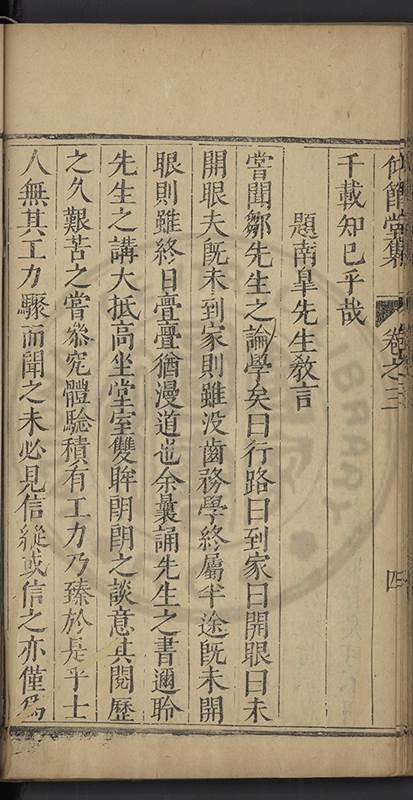 仰節堂集 卷之三 四
千載知己乎哉
題南臯先生敎言
嘗聞鄒先生之論學矣曰行路曰到家曰開眼曰未
開眼夫旣未到家則雖沒齒務學終屬半途旣未開
眼則雖終日亹亹猶漫道也余曩誦先生之書邇聆
先生之講大抵高坐堂室雙眸朗朗之談意其閱歷
之久艱苦之嘗叅究體驗積有工力乃臻於是乎士
人無其工力驟而聞之未必見信縱或信之亦僅爲